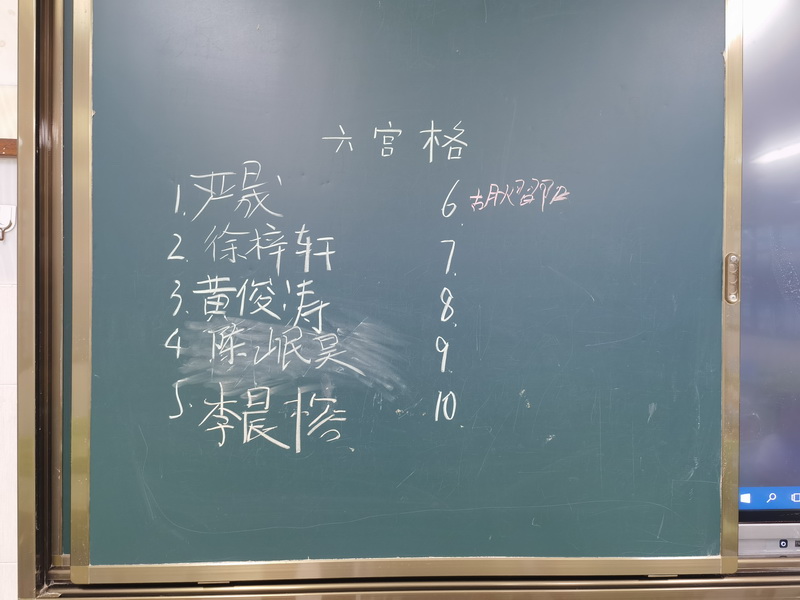 六宫格
1. 严晟
2. 徐梓轩
3. 黄俊涛
4 陈岷昊
5. 李晨
6. 胡
7.
8.
9.
10.